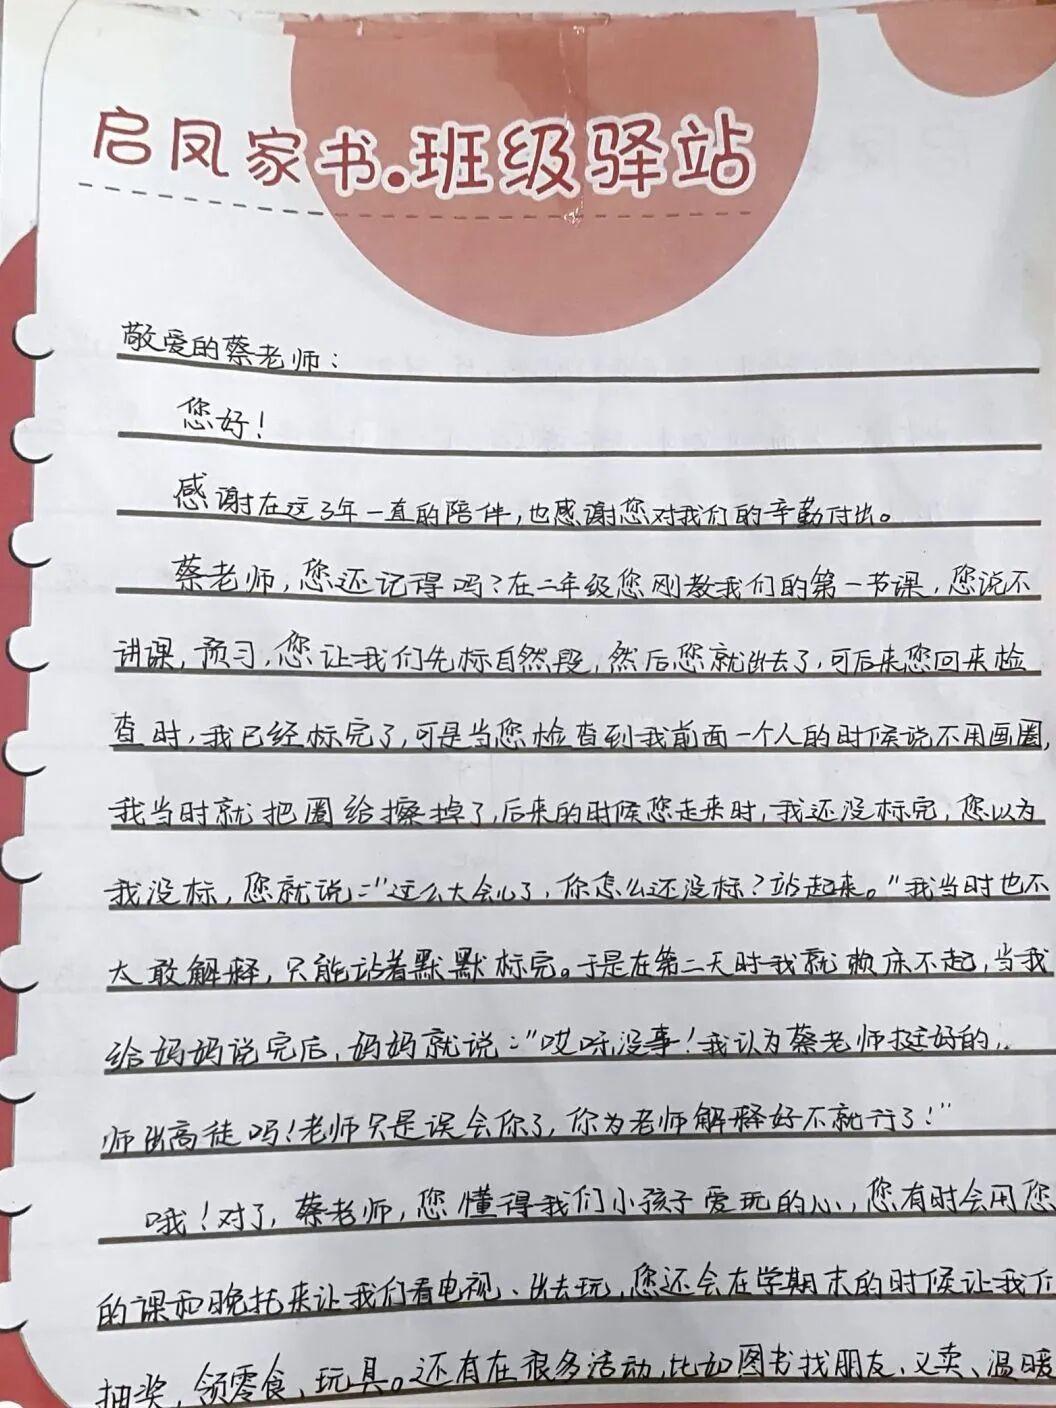 启凤家书.班级驿站
敬爱的蔡老师：
您好！
感谢在这3年一直的陪伴，也感谢您对我们的辛勤付出。
蔡老师，您还记得吗？在二年级您刚教我们的第一节课，您说不
讲课，预习，您让我们先标自然段，然后您就出去了，可后来您回来检
查时，我已经标完了，可是当您检查到我前面一个人的时候说不用画圈，
我当时就把圈给擦掉了，后来的时候您走来时，我还没标完，您以为
我没标，您就说：“这么大会儿了，你怎么还没标？站起来。”我当时也不
太敢解释，只能站着默默标完。于是在第二天时我就赖床不起，当我
给妈妈说完后，妈妈就说：“哎呀没事！我认为蔡老师挺好的，
师出高徒吗！老师只是误会你了，你为老师解释好不就行了！”
哦！对了，蔡老师，您懂得我们小孩子爱玩的心，您有时会用您
的课和晚托来让我们看电视、出去玩，您还会在学期末的时候让我们
抽奖，领零食、玩具。还有在很多活动，比如图书找朋友、义卖、温暖